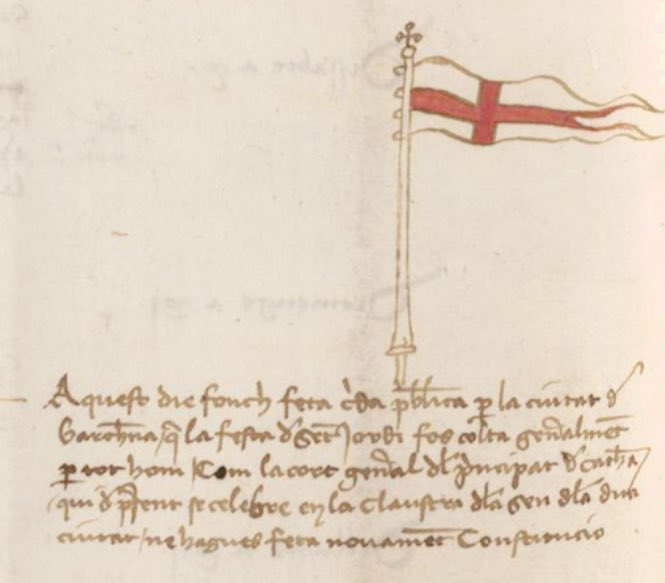 Aquest die fonch feta crida publica per la ciutat de
Barchna / q̃ la festa de Sct Jordi fos colta gen̄alment
per tot hom / Com la cort gen̄al del principat de Cathā
qui de present se celebre en la Claustra dela Seu dela dita
ciutat / ne hagues feta nouament Constitucio